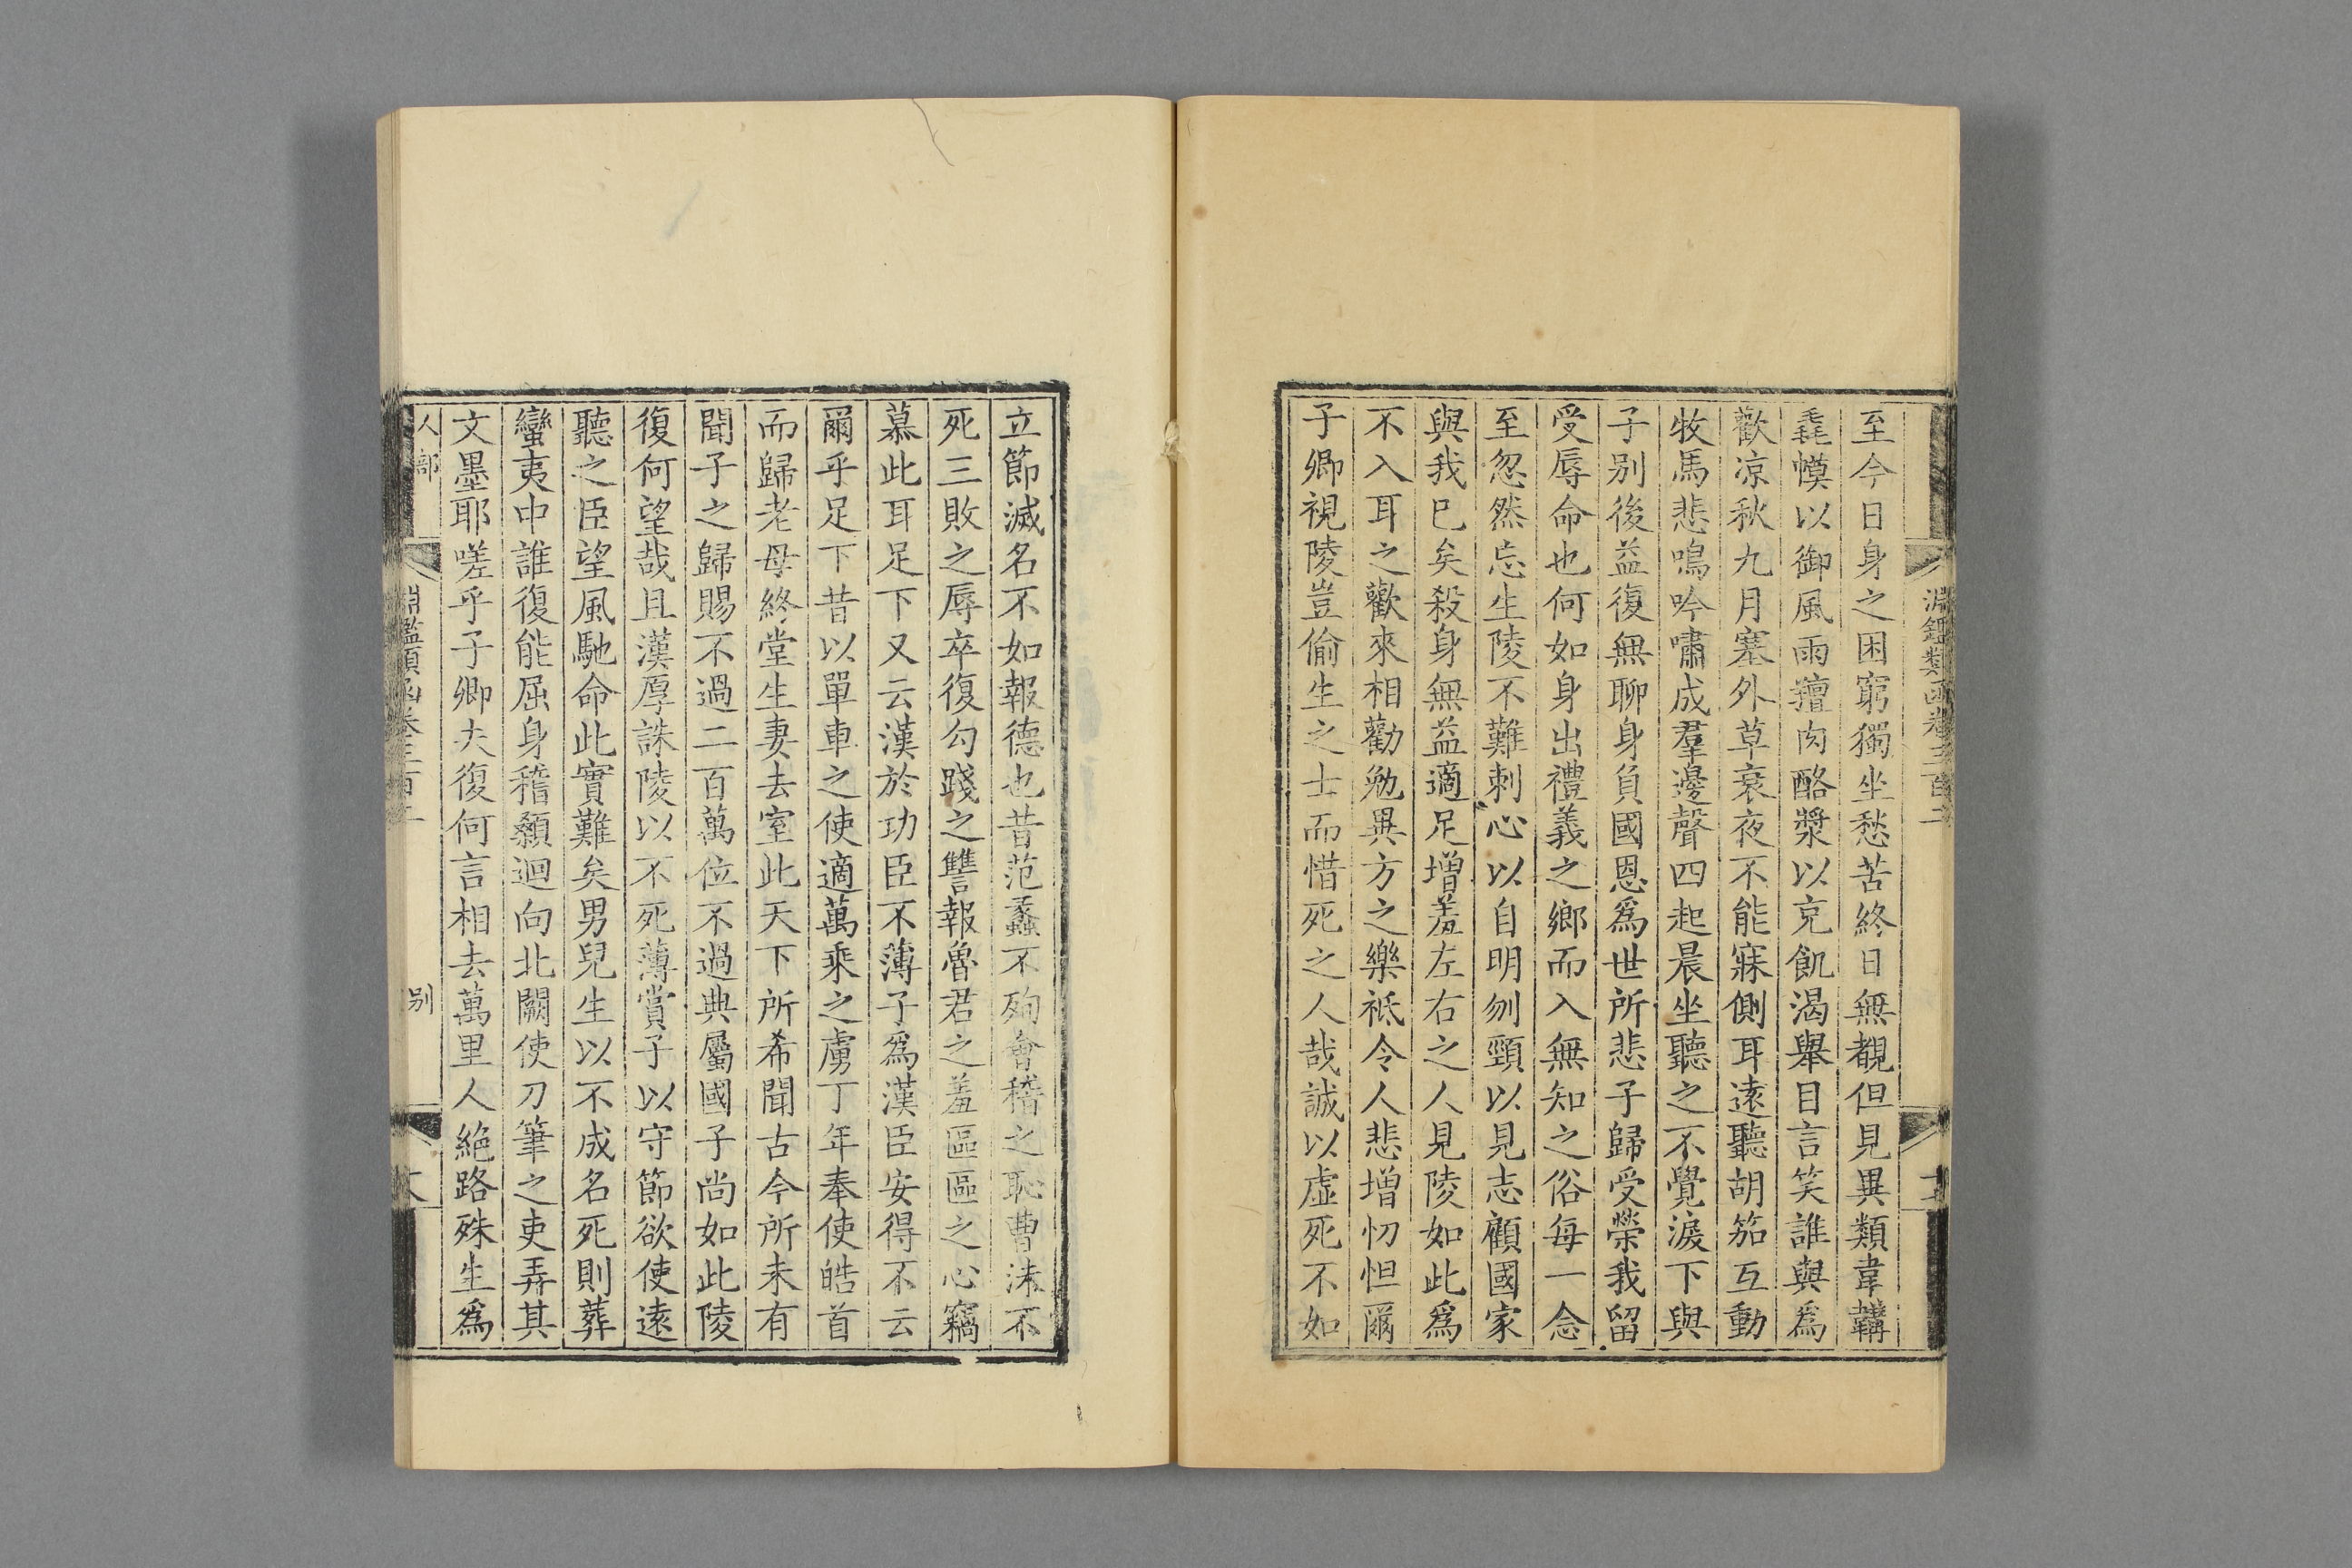 至今日身之困窮獨坐愁苦終日無覩但見異類韋韝
毳幙以御風雨羶肉酪漿以充飢渴舉目言笑誰與爲
歡凉秋九月塞外草衰夜不能寐側耳遠聽胡笳互動
牧馬悲鳴吟嘯成羣邊聲四起晨坐聽之不覺淚下與
子别後益復無聊身負國恩爲世所悲子歸受榮我留
受辱命也何如身出禮義之鄉而入無知之俗每一念
至忽然忘生陵不難刺心以自明刎頸以見志顧國家
與我已矣殺身無益適足增羞左右之人見陵如此爲
不入耳之歡來相勸勉異方之樂祗令人悲增忉怛爾
子卿視陵豈偷生之士而惜死之人哉誠以虛死不如
立節滅名不如報德也昔范蠡不殉會稽之恥曹沬不
死三敗之辱卒復勾踐之讐報魯君之羞區區之心竊
慕此耳足下又云漢於功臣不薄子爲漢臣安得不云
爾乎足下昔以單車之使適萬乘之虜丁年奉使皓首
而歸老母終堂生妻去室此天下所希聞古今所未有
聞子之歸賜不過二百萬位不過典屬國子尚如此陵
復何望哉且漢厚誅陵以不死薄賞子以守節欲使遠
聽之臣望風馳命此實難矣男兒生以不成名死則葬
蠻夷中誰復能屈身稽顙迴向北闕使刀筆之吏弄其
文墨耶嗟乎子卿夫復何言相去萬里人絶路殊生爲
人部
淵鑑類函卷三百
别